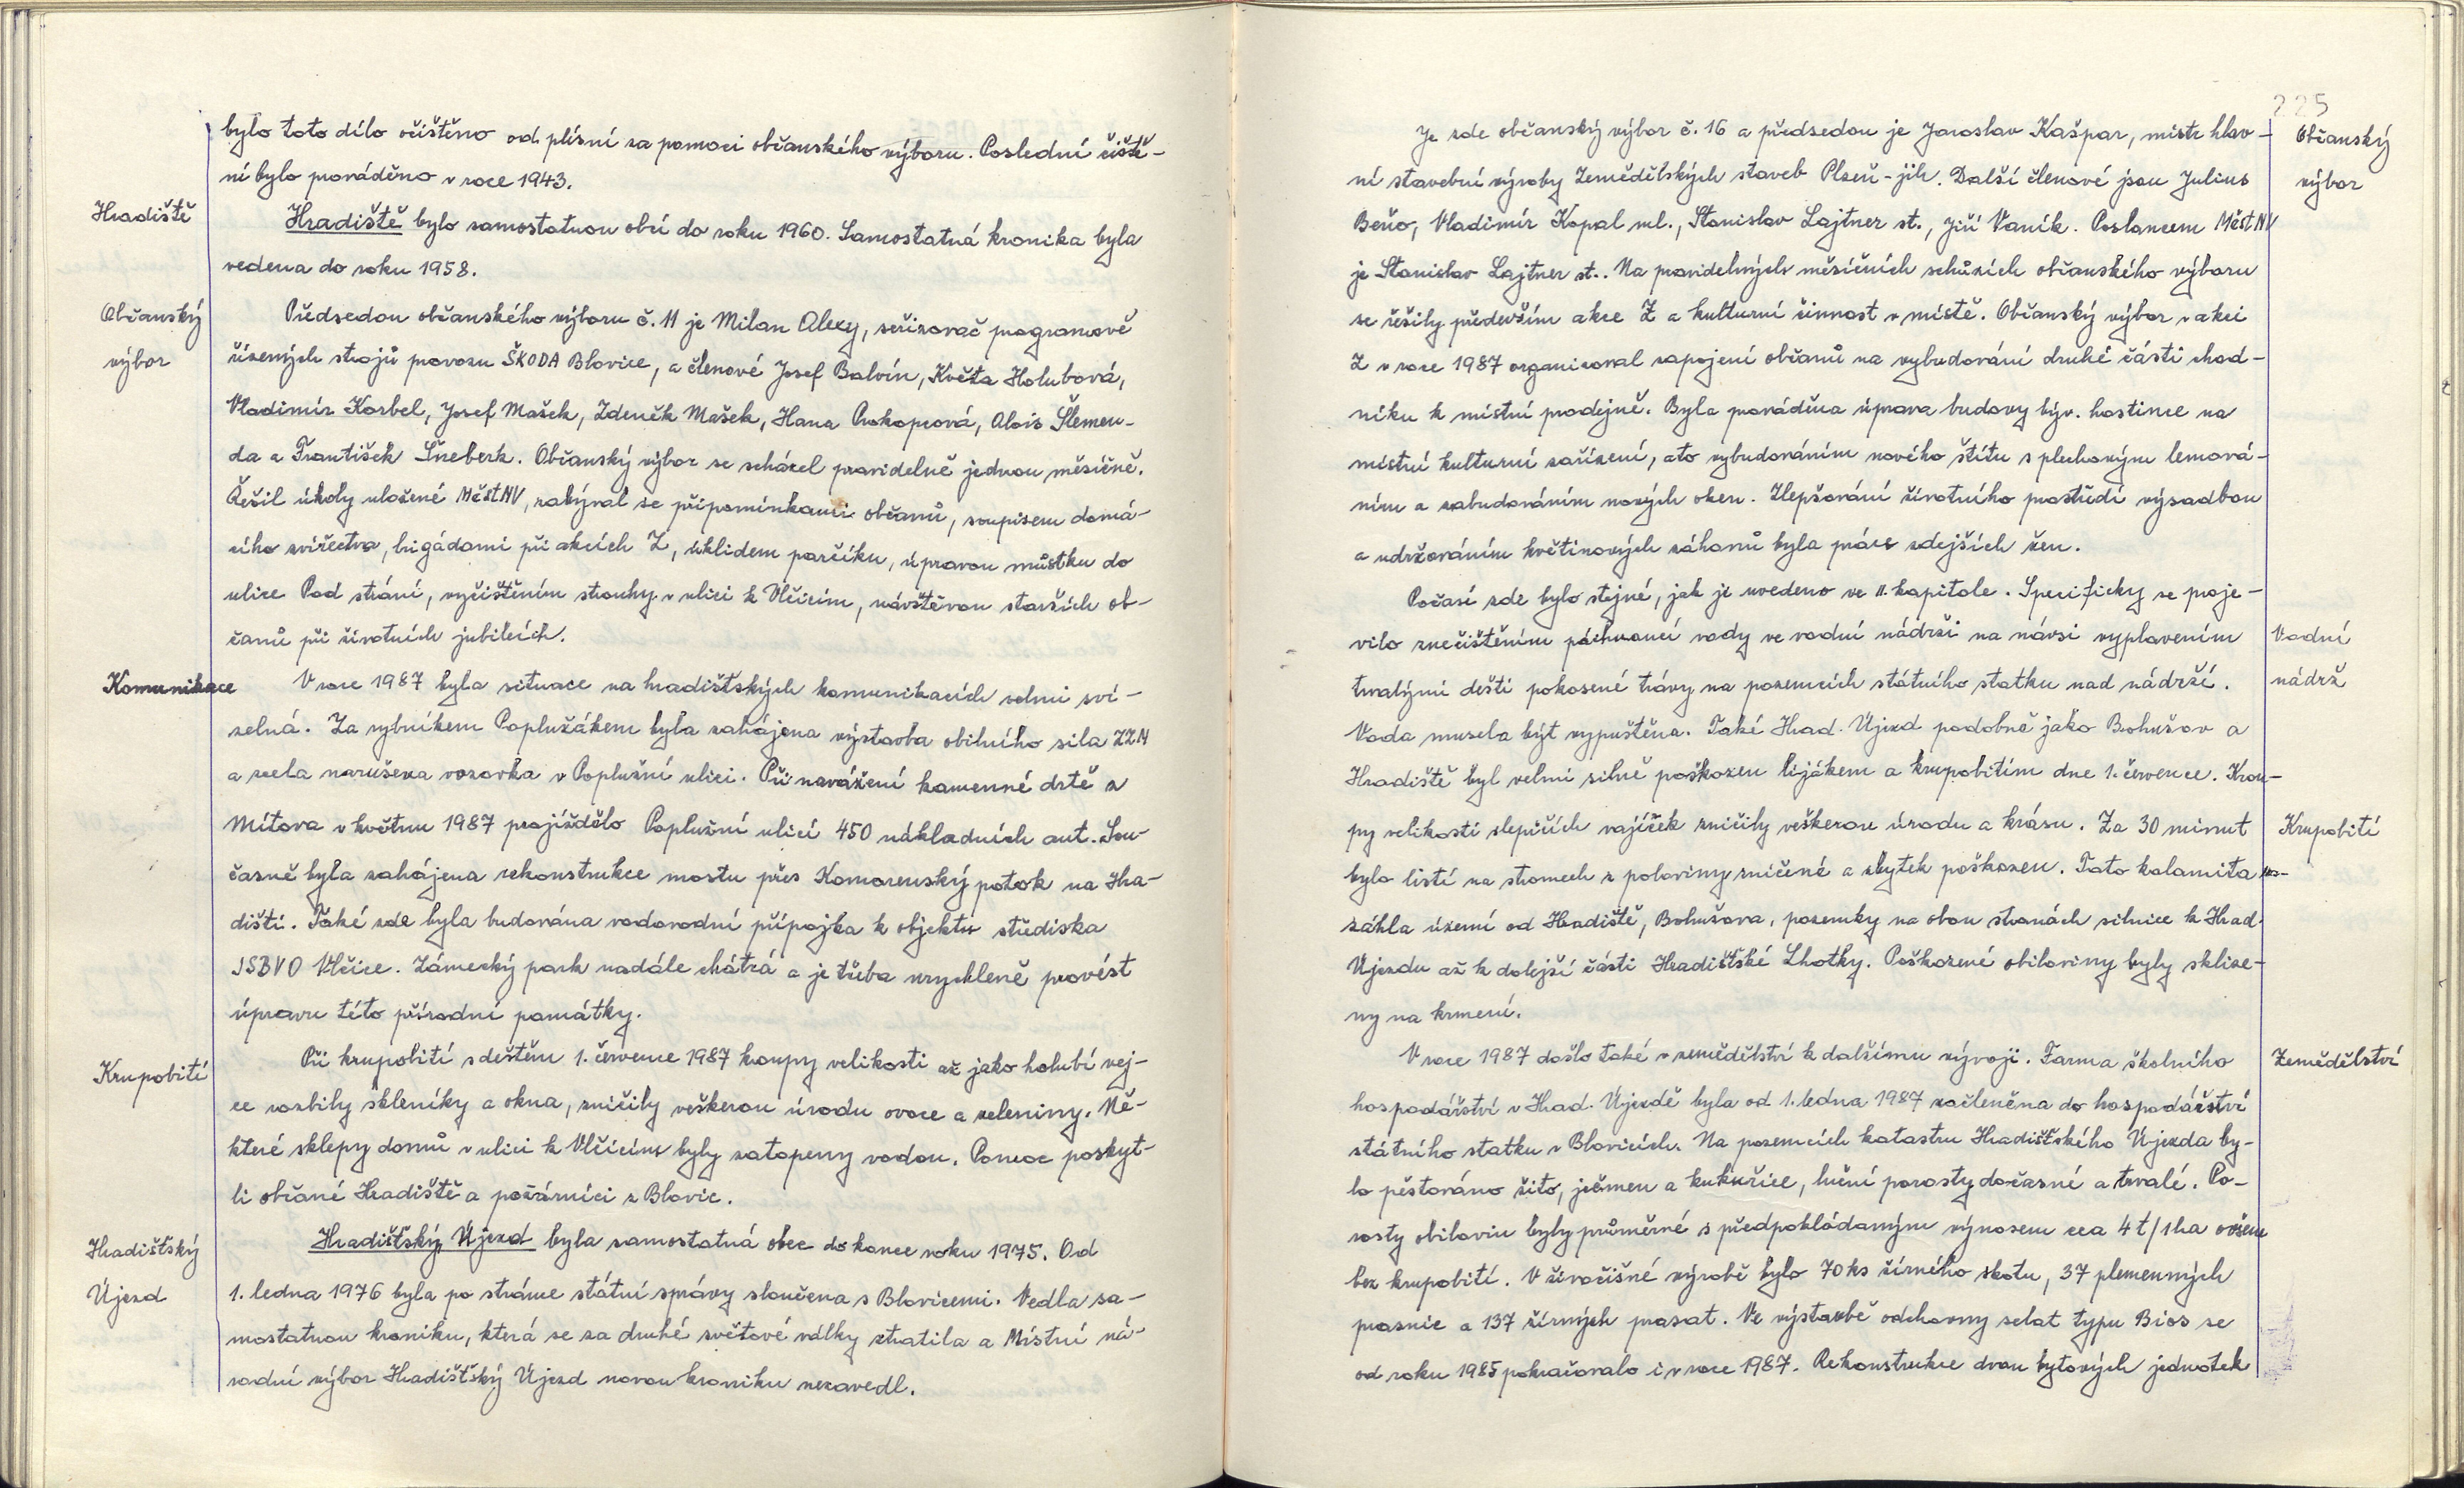 bylo toto dílo očištěno od plísní za pomoci občanského výboru. Poslední čiště-
ní bylo prováděno v roce 1943.
Hradiště
Hradiště bylo samostatnou obcí do roku 1960. Samostatná kronika byla
vedena do roku 1958.
Občanský
výbor
Předsedou občanského výboru č. 11 je Milan Alexy, seřizovač programově
řízených strojů provozu ŠKODA Blovice, a členové Josef Balvín, Květa Holubová,
Vladimír Korbel, Josef Mašek, Zdeněk Mašek, Hana Prokopcová, Alois Šlemen-
da a František Šneberk. Občanský výbor se scházel pravidelně jednou měsíčně.
Řešil úkoly uložené MěstNV, zabýval se připomínkami občanů, soupisem domá-
cího zvířectva, brigádami při akcích Z, úklidem parčíku, úpravou můstku do
ulice Pod strání, vyčištěním strouhy v ulici k Vlčicím, návštěvou starších ob-
čanů při životních jubileích.
Komunikace
V roce 1987 byla situace na hradištských komunikacích velmi sví-
zelná. Za rybníkem Poplužákem byla zahájena výstavba obilního sila ZZN
a zcela narušena vozovka v Poplužní ulici. Při navážení kamenné drtě z
Mítova v květnu 1987 projíždělo Poplužní ulicí 450 nákladních aut. Sou-
časně byla zahájena rekonstrukce mostu přes Komorenský potok na Hra-
dišti. Také zde byla budována vodovodní přípojka k objektu střediska
JSBVO Vlčice. Zámecký park nadále chátrá a je třeba urychleně provést
úpravu této přírodní památky.
Krupobití
Při krupobití s deštěm 1. července 1987 kroupy velikosti až jako holubí vej-
ce rozbily skleníky a okna, zničily veškerou úrodu ovoce a zeleniny. Ně-
které sklepy domů v ulici k Vlčicím byly zatopeny vodou. Pomoc poskyt-
li občané Hradiště a požárníci z Blovic.
Hradišťský
Újezd
Hradišťský Újezd byla samostatná obec do konce roku 1975. Od
1. ledna 1976 byla po stránce státní správy sloučena s Blovicemi. Vedla sa-
mostatnou kroniku, která se za druhé světové války ztratila a Místní ná-
rodní výbor Hradišťský Újezd novou kroniku nezavedl.
225
Občanský
výbor
Je zde občanský výbor č. 16 a předsedou je Jaroslav Kašpar, mistr hlav-
ní stavební výroby Zemědělských staveb Plzeň-jih. Další členové jsou Julius
Beňo, Vladimír Kopal ml., Stanislav Lajtner st., Jiří Vaník. Poslancem MěstNV
je Stanislav Lajtner st.. Na pravidelných měsíčních schůzích občanského výboru
se řešily především akce Z a kulturní činnost v místě. Občanský výbor v akci
Z v roce 1987 organizoval zapojení občanů na vybudování druhé části chod-
níku k místní prodejně. Byla prováděna úprava budovy býv. hostince na
místní kulturní zařízení, a to vybudováním nového štítu s plechovým lemová-
ním a zabudováním nových oken. Zlepšování životního prostředí výsadbou
a udržováním květinových záhonů byla práce zdejších žen.
Počasí zde bylo stejné, jak je uvedeno ve II. kapitole. Specificky se proje-
vilo znečištěním páchnoucí vody ve vodní nádrži na návsi vyplavením
Vodní
nádrž
trvalými dešti pokosené trávy na pozemcích státního statku nad nádrží.
Voda musela být vypuštěna. Také Hrad. Újezd podobně jako Bohušov a
Hradiště byl velmi silně poškozen lijákem a krupobitím dne 1. července. Krou-
py velikosti slepičích vajíček zničily veškerou úrodu a krásu. Za 30 minut
Krupobití
bylo listí na stromech z poloviny zničené a zbytek poškozen. Tato kalamita za-
sáhla území od Hradiště, Bohušova, pozemky na obou stranách silnice k Hrad.
Újezdu až k dolejší části Hradišťské Lhotky. Poškozené obiloviny byly sklize-
ny na krmení.
Zemědělství
V roce 1987 došlo také v zemědělství k dalšímu vývoji. Farma školního
hospodářství v Hrad. Újezdě byla od 1. ledna 1987 začleněna do hospodářství
státního statku v Blovicích. Na pozemcích katastru Hradišťského Újezda by-
lo pěstováno žito, ječmen a kukuřice, luční porosty dočasné a trvalé. Po-
rosty obilovin byly průměrné s předpokládaným výnosem cca 4 t/1ha ovšem
bez krupobití. V živočišné výrobě bylo 70 ks žírného skotu, 37 plemenných
prasnic a 137 žírných prasat. Ve výstavbě odchovny selat typu Bios se
od roku 1985 pokračovalo i v roce 1987. Rekonstrukce dvou bytových jednotek